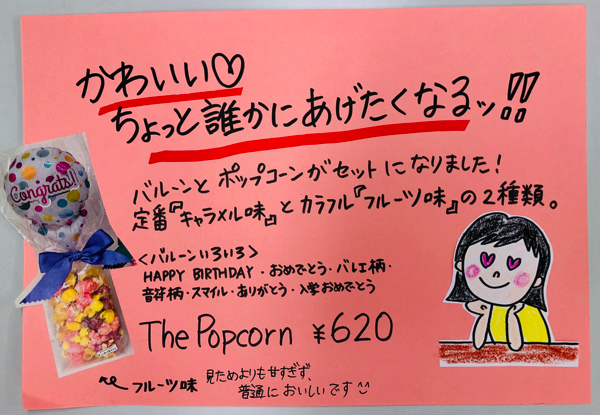 かわいい♡
ちょっと誰かにあげたくなるッ!!
バルーンとポップコーンがセットになりました!
定番『キャラメル味』とカラフル『フルーツ味』の2種類。
Congrats!
<バルーンいろいろ>
HAPPY BIRTHDAY・おめでとう・バレエ柄・
音符柄・スマイル・ありがとう・入学おめでとう
The Popcorn ¥620
フルーツ味 見ためよりも甘すぎず、
普通においしいです